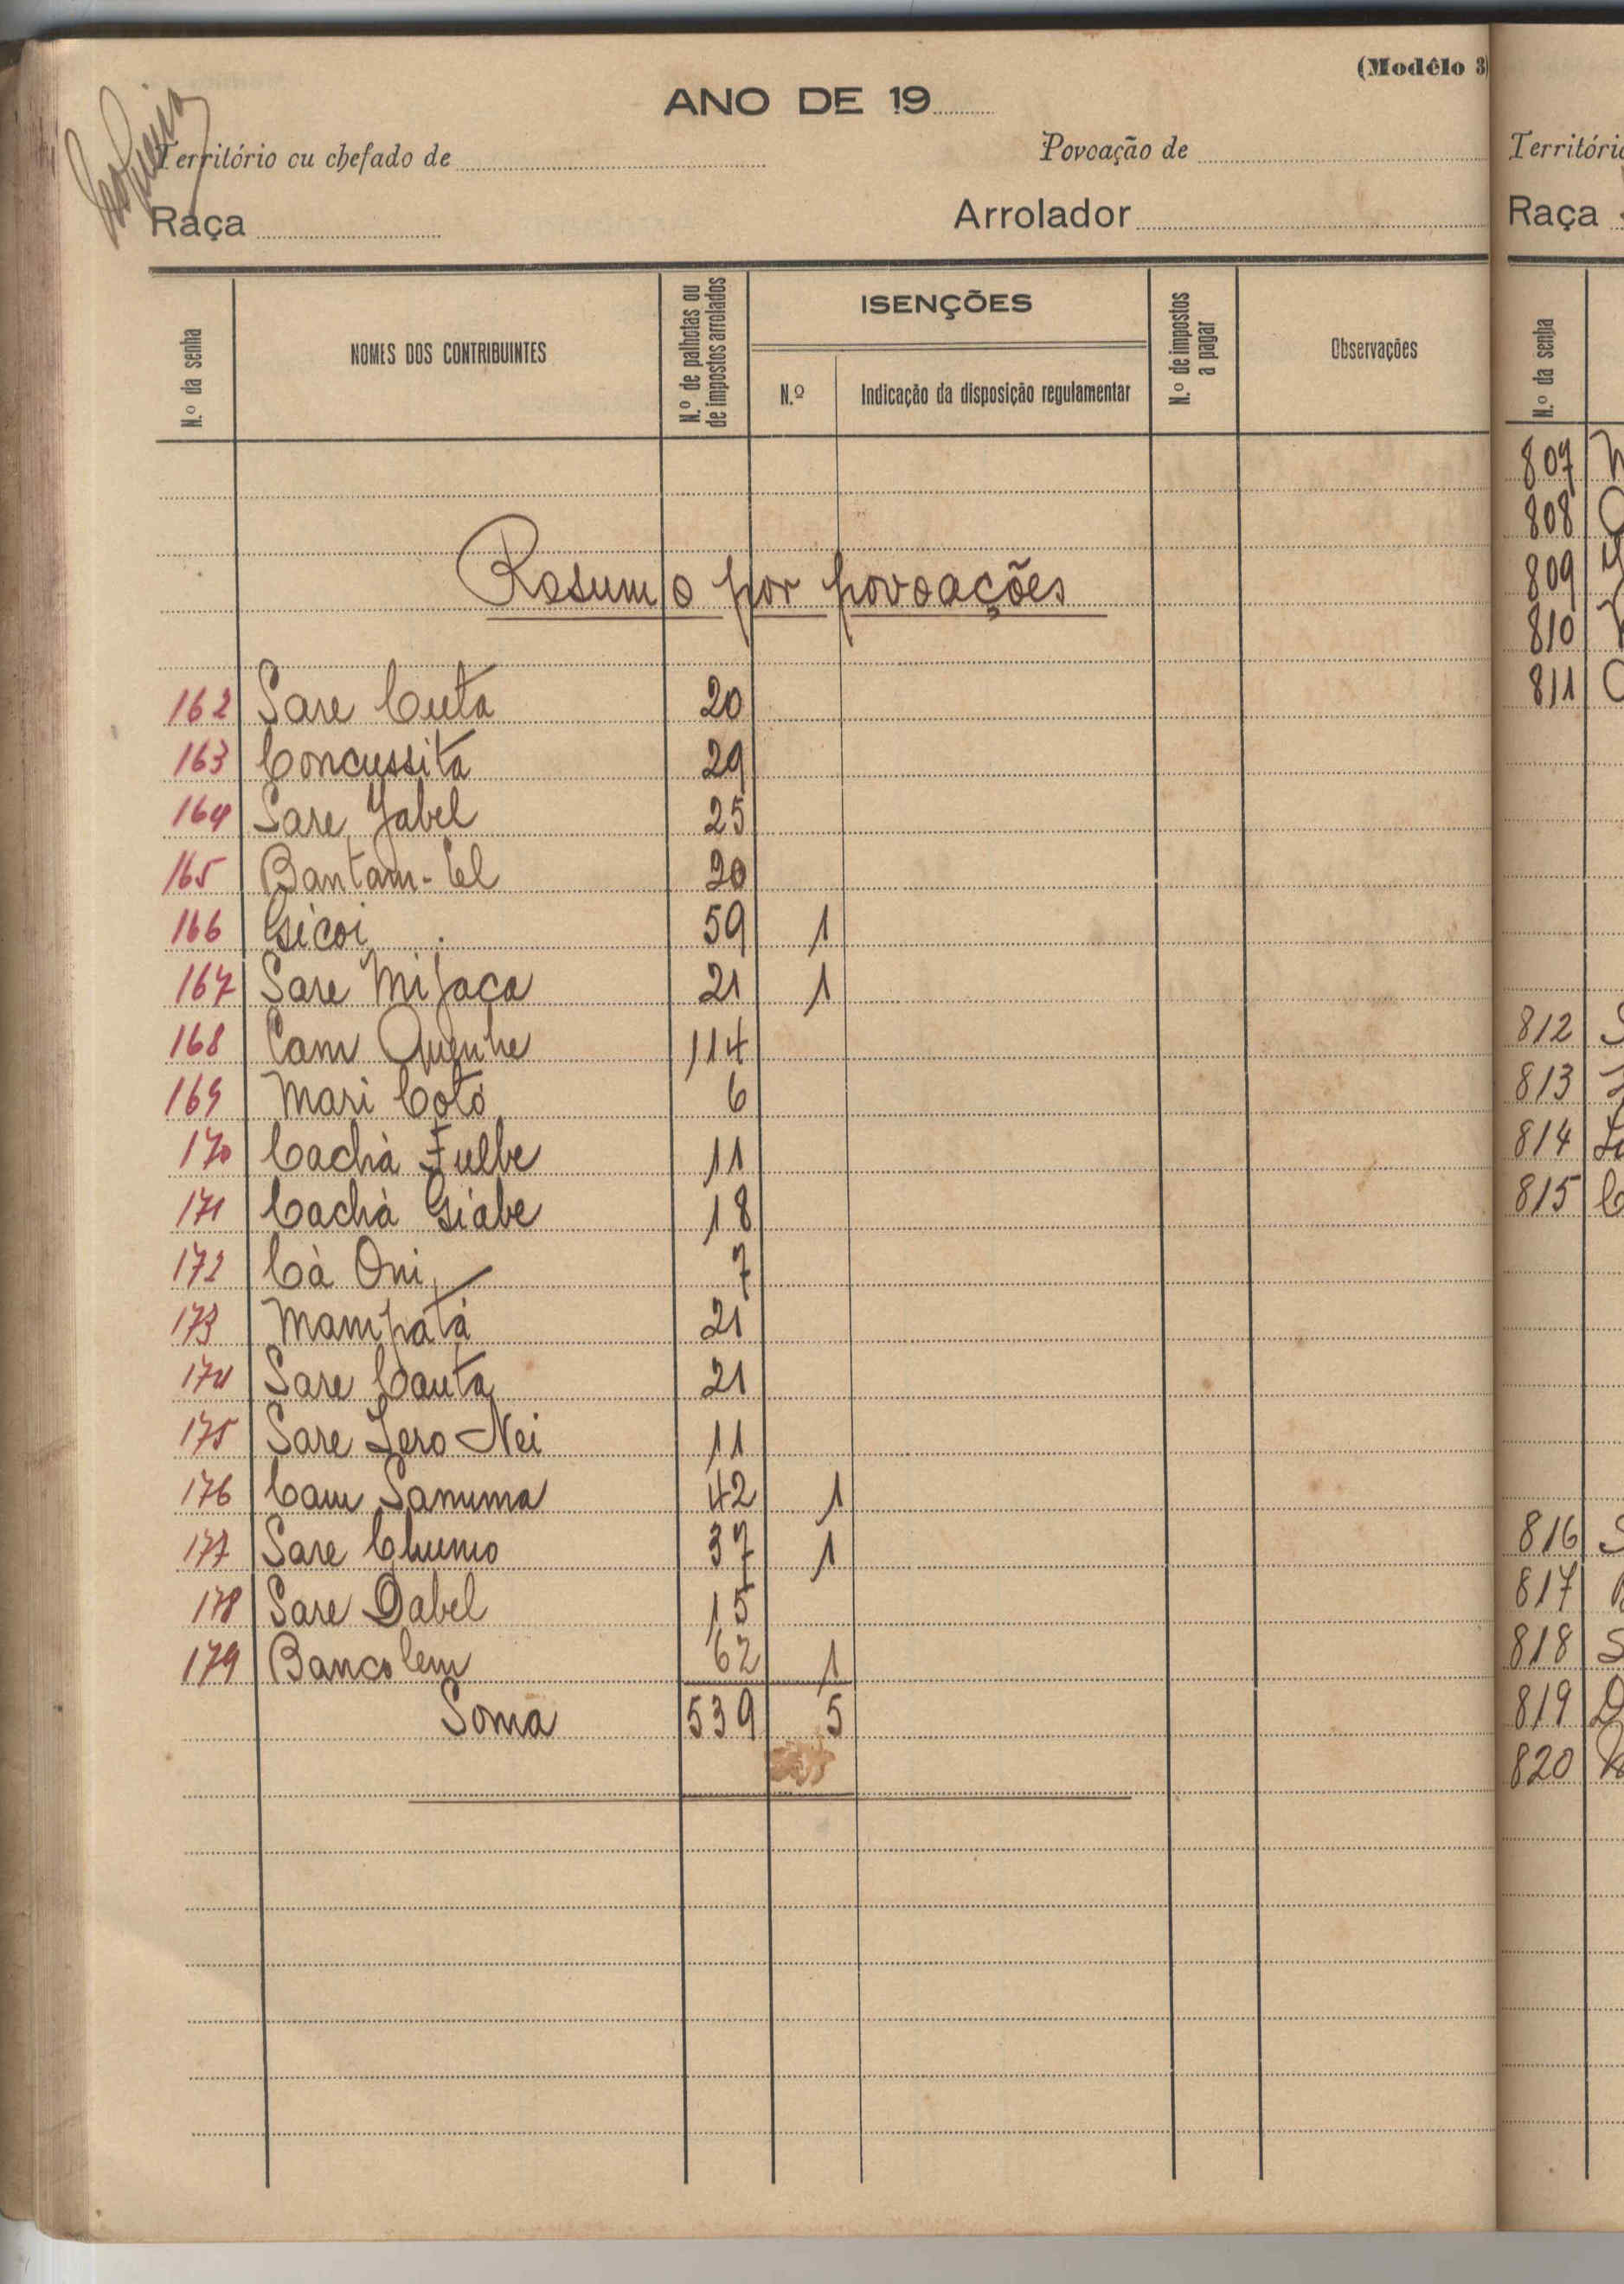 (Modêlo 3)
ANO DE 19
Território ou chefado de
Povoação de
Raça
Arrolador
N.º da senha
NOMES DOS CONTRIBUINTES
N.º de palhotas ou de impostos arrolados
ISENÇÕES
N.º
Indicação da disposição regulamentar
N.º de impostos a pagar
Observações
Resumo por povoações
162 Sare Cuta 20
163 Concussita 29
164 Sare Jabel 25
165 Bantam-Cel 20
166 Gicoi 59 1
167 Sare Mijaca 21 1
168 Cam Quenhe 114
169 Mari Cotó 6
170 Cachà Fulbe 11
171 Cachà Giabe 18
172 Cà Oni 7
173 Mampatá 21
174 Sare Cauta 21
175 Sare Iero Nei 11
176 Cam Sanuma 42 1
177 Sare Chumo 37 1
178 Sare Dabel 15
179 Bancolem 62 1
Soma 539 5
Território
Raça
N.º da senha
807
808
809
810
811
812
813
814
815
816
817
818
819
820